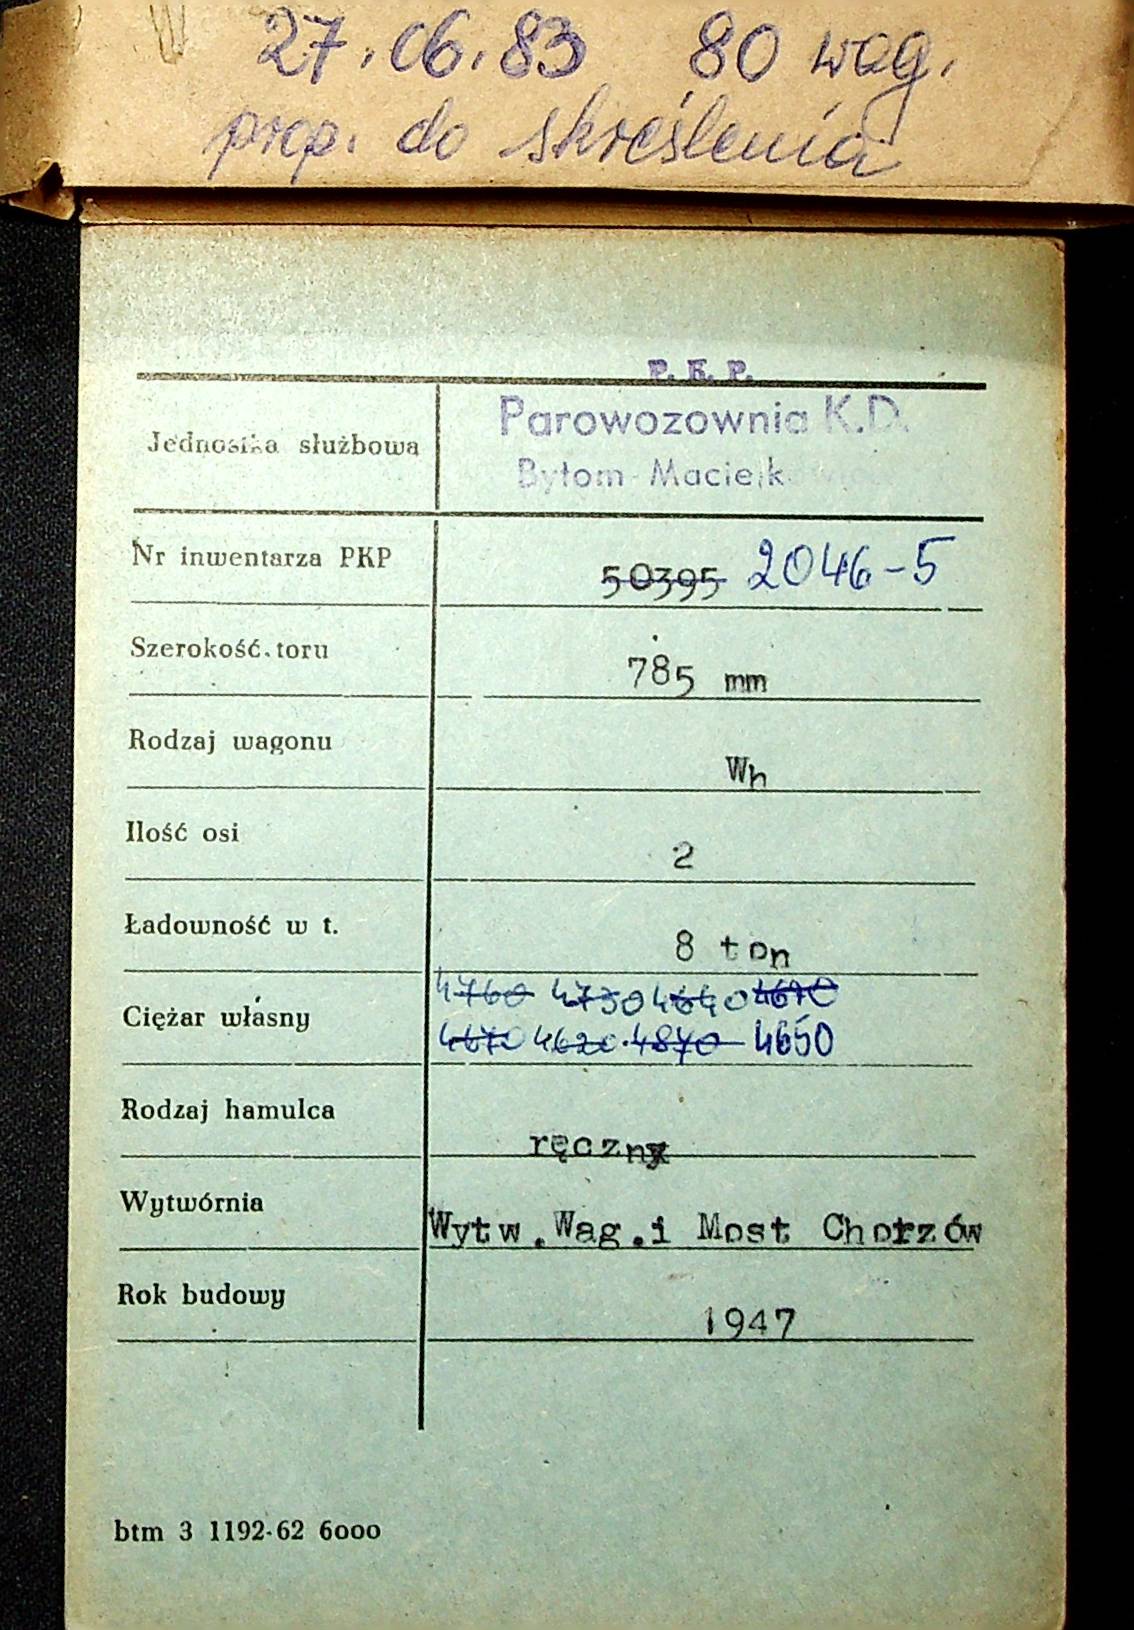 27.06.83 80 wag.
prop. do skreślenia
P. K. P.
Parowozownia K.D.
Jednostka służbowa
Bytom-Maciejk
Nr inwentarza PKP 50395 2046-5
Szerokość toru 785 mm
Rodzaj wagonu Wh
Ilość osi 2
Ładowność w t. 8 ton
4760 4730 4640 4670
Ciężar własny
4670 4620 4870 4650
Rodzaj hamulca ręczny
Wytwórnia Wytw.Wag.i Most Chorzów
Rok budowy 1947
btm 3 1192-62 6000